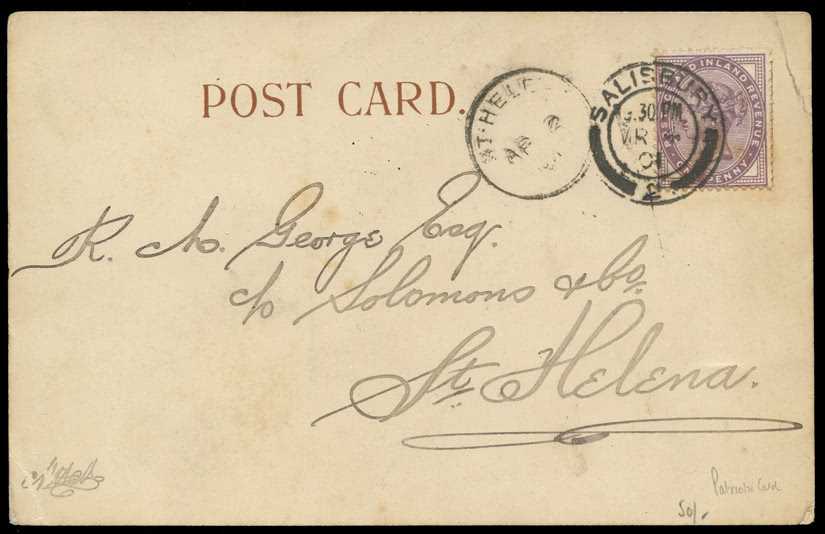 POST CARD.
ST. HELE
AP
SALISBURY
.30 PM
MR 4
01
2
D INLAND REVENUE
PENNY
R. M. George Esq.
c/o Solomons & Co.
St. Helena.
Patriotic Card
50/.